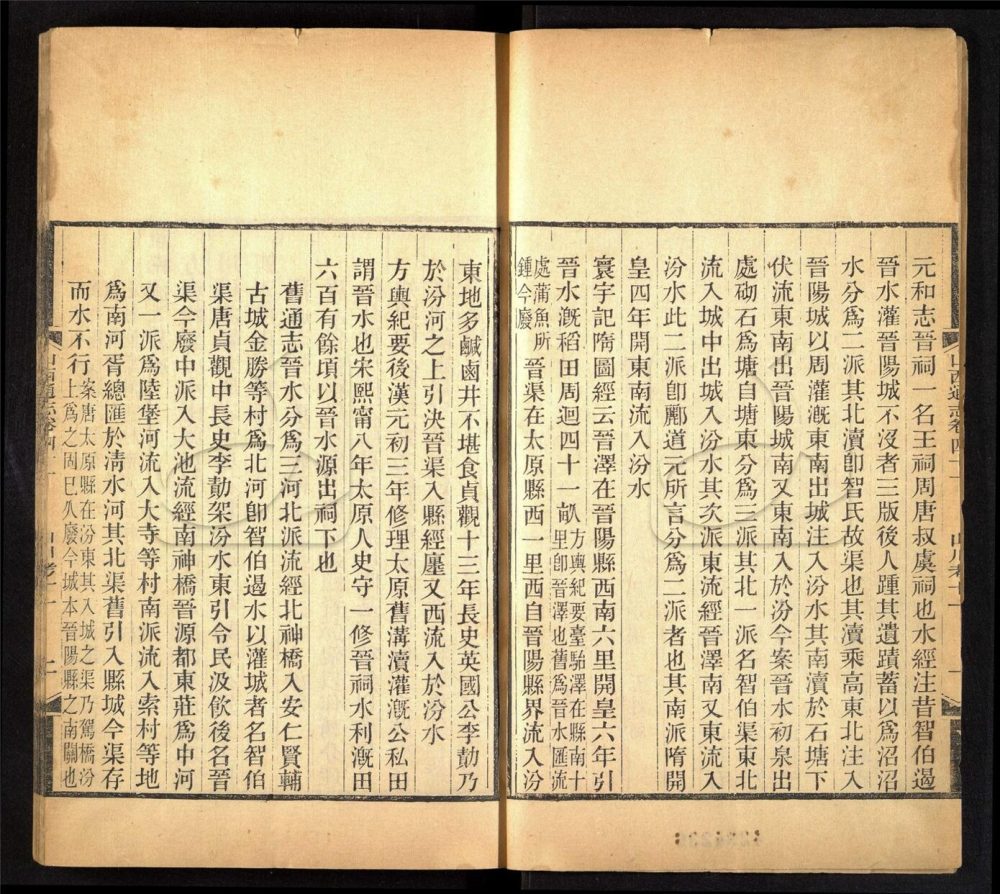 元和志晉祠一名王祠周唐叔虞祠也水經注昔智伯遏
晉水灌晉陽城不沒者三版後人踵其遺蹟蓄以爲沼沼
水分爲二派其北瀆卽智氏故渠也其瀆乘高東北注入
晉陽城以周灌漑東南出城注入汾水其南瀆於石塘下
伏流東南出晉陽城南又東南入於汾今案晉水初泉出
處砌石爲塘自塘東分爲三派其北一派名智伯渠東北
流入城中出城入汾水其次派東流經晉澤南又東流入
汾水此二派卽酈道元所言分爲二派者也其南派隋開
皇四年開東南流入汾水
寰宇記隋圖經云晉澤在晉陽縣西南六里開皇六年引
晉水漑稻田周迴四十一畝方輿紀要臺駘澤在縣南十
里卽晉澤也舊爲晉水匯流
處蒲魚所
鍾今廢
晉渠在太原縣西一里西自晉陽縣界流入汾
東地多鹹鹵井不堪食貞觀十三年長史英國公李勣乃
於汾河之上引決晉渠入縣經鄽又西流入於汾水
方輿紀要後漢元初三年修理太原舊溝瀆灌漑公私田
謂晉水也宋熙甯八年太原人史守一修晉祠水利漑田
六百有餘頃以晉水源出祠下也
舊通志晉水分爲三河北派流經北神橋入安仁賢輔
古城金勝等村爲北河卽智伯遏水以灌城者名智伯
渠唐貞觀中長史李勣架汾水東引令民汲飮後名晉
渠今廢中派入大池流經南神橋晉源都東莊爲中河
又一派爲陸堡河流入大寺等村南派流入索村等地
爲南河胥總匯於淸水河其北渠舊引入縣城今渠存
而水不行案唐太原縣在汾東其入城之渠乃駕橋汾
上爲之固已久廢今城本晉陽縣之南關也
山西通志卷四十